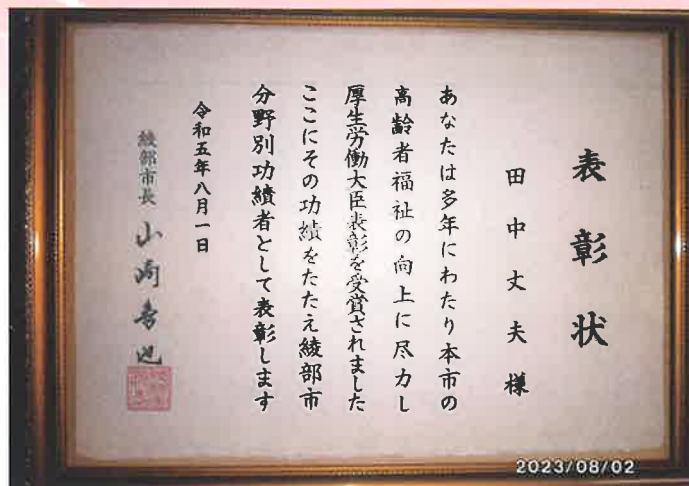 表彰状
田中丈夫様
あなたは多年にわたり本市の
高齢者福祉の向上に尽力し
厚生労働大臣表彰を受賞されました
ここにその功績をたたえ綾部市
分野別功績者として表彰します
令和五年八月一日
綾部市長 山崎善也
2023/08/02